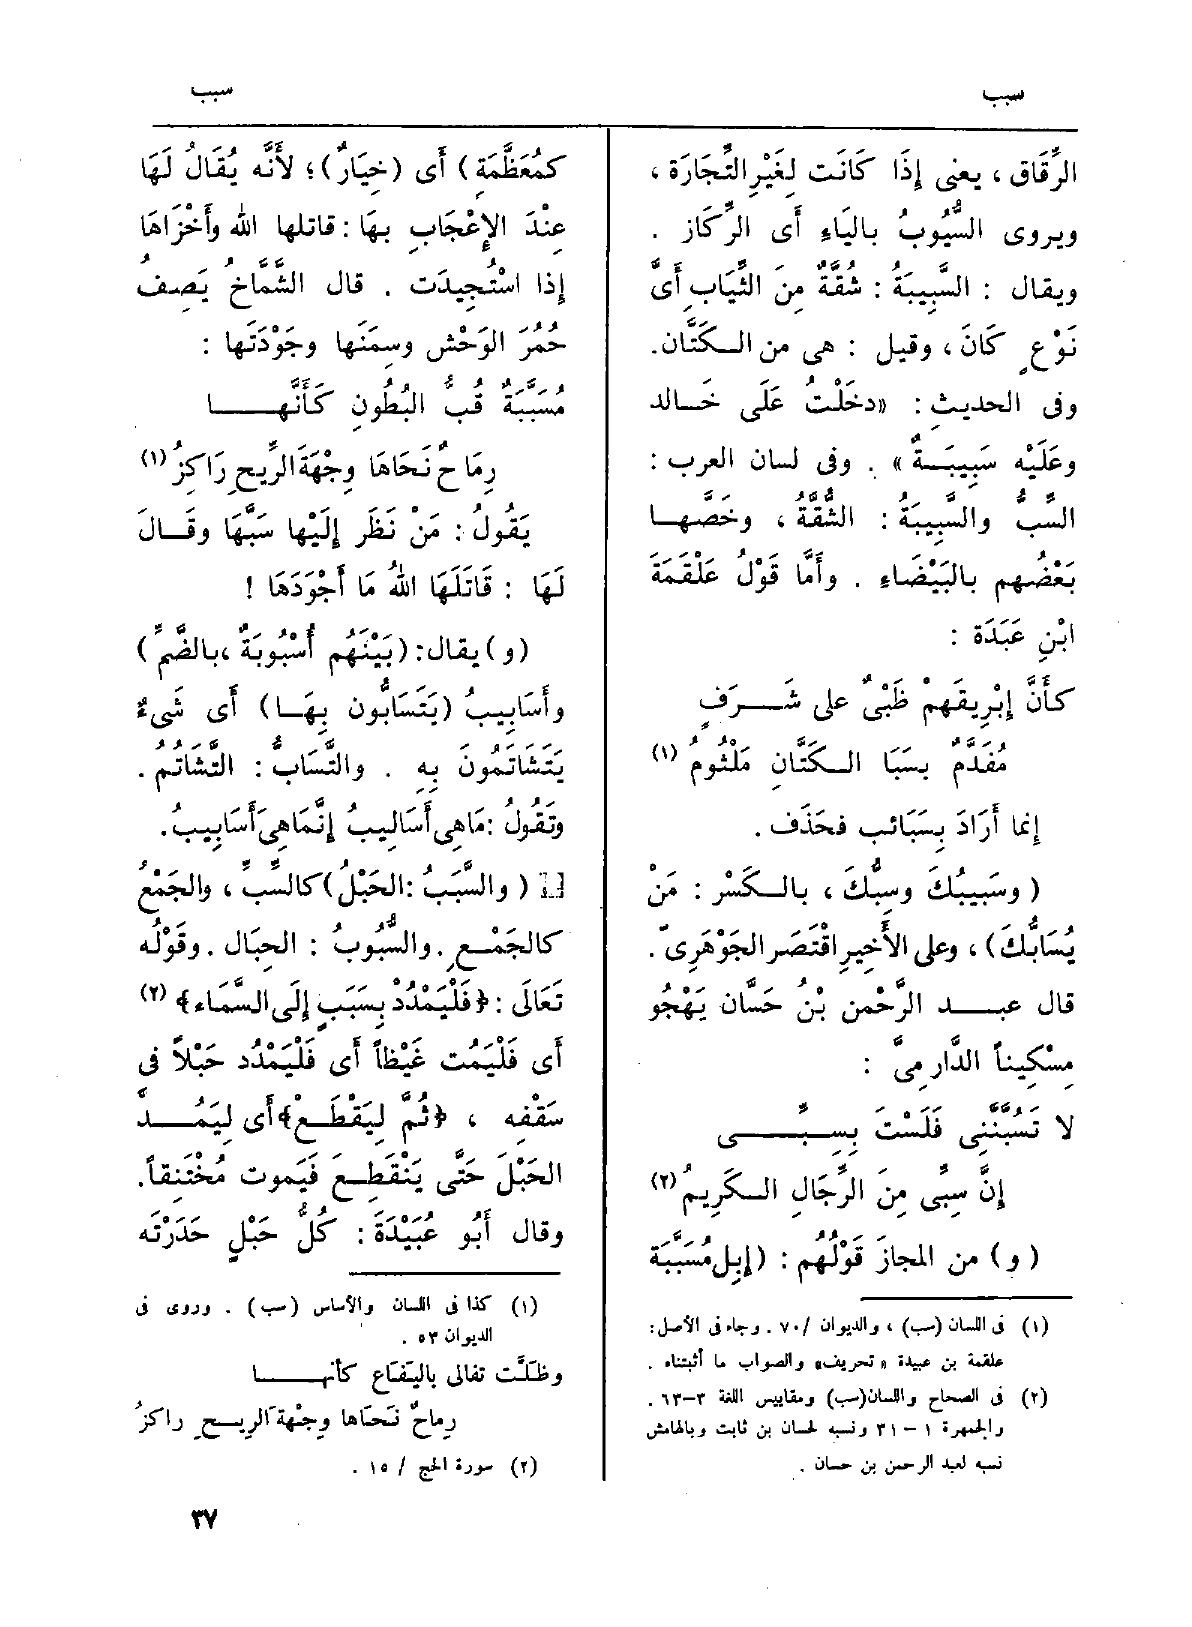 سبب
سبب
الرِّقَاق ، يعنى إِذَا كَانَت لِغَيْرِ التِّجَارَة ،
ويروى السُّيُوبُ بالياءِ أى الرِّكَاز .
ويقال : السَّبِيبَةُ : شُقَّةٌ مِنَ الثِّيَابِ أَىَّ
نَوْعٍ كَانَ ، وقيل : هى من الـكَتَّان.
وفى الحديثِ : «دخَلْتُ عَلَى خَـالد
وعَلَيْه سَبِيبَـةٌ» . وفى لسان العرب :
السِّبُّ والسَّبِيبَةُ : الشُّقَّةُ ، وخَصَّهـا
بَعْضُهم بالبَيْضَاءِ . وأَمَّا قَوْلُ عَلْقَمَةَ
ابْنِ عَبَدَة :
كأَنَّ إِبْرِيقَهمْ ظَبْىٌ على شَـرَفٍ
مُفَدَّمٌ بسَبَا الـكَتَّانِ مَلْثُومُ (١)
إنما أَرَادَ بِسَبَائب فحَذَف .
( وسَبِيبُكَ وسِبُّكَ ، بالـكَسْر : مَنْ
يُسَابُّكَ) ، وعلى الأَخِيرِ اقْتَصَر الجَوْهَرِىّ .
قال عبـد الرَّحْمن بْنُ حَسَّان يَهْجُو
مِسْكِيناً الدَّارِمِىَّ :
لا تَسُبَّنَّنِى فَلَسْتَ بِسِبِّـى
إِنَّ سِبِّى مِنَ الرِّجَالِ الـكَرِيمُ (٢)
( و) من المجازَ قَوْلُهم : (إِبِل مُسَبَّبَة
(١) فى اللسان (سب) ، والديوان /٧٠ . وجاء فى الأصل :
علقمة بن عبيدة «تحريف» والصواب ما أثبتناه .
(٢) فى الصحاح واللسان(سب) ومقاييس اللغة ٣–٦٣ .
والجمهرة ١ – ٣١ ونسبه لحسان بن ثابت وبالهامش
نسبه لعبد الرحمن بن حسان .
كمُعَظَّمَةٍ) أَى (خِيَارٌ) ؛ لأَنَّه يُقَالُ لَهَا
عِنْدَ الإِعْجَابِ بهَا : قاتلها اللهُ وأَخْزَاهَا
إذا اسْتُجِيدَت . قال الشَّمَّاخُ يَصِفُ
حُمُرَ الوَحْش وسِمَنَها وجَوْدَتَها :
مُسَبَّبَةٌ قُبُّ البُطُونِ كَأَنَّهـا
رِمَاحٌ نَحَاهَا وِجْهَةَ الرِّيحِ رَاكِزُ (١)
يَقُولُ : مَنْ نَظَر إِلَيْها سَبَّهَا وقَـالَ
لَهَا : قَاتَلَهَا اللهُ مَا أَجْوَدَهَا !
(و) يقال: (بَيْنَهُم أُسْبُوبَةٌ ،بالضَّمِّ)
وأَسَابِيبُ (يَتَسَابُّون بِهَـا) أَى شَىءٌ
يَتَشَاتَمُونَ بِهِ . والتَّسَابُّ : التَّشَاتُم .
وتَقُولُ : مَاهِى أَسَالِيبُ إِنَّمَاهِىَ أَسَابِيبُ .
[] ( والسَّبَبُ :الحَبْلُ)كالسِّبِّ ، والجَمْعُ
كالجَمْـعِ . والسُّبُوبُ : الحِبَال . وقَوْلُه
تَعَالَى : ﴿فَلْيَمْدُدْ بِسَبَبٍ إِلَى السَّمَاء﴾ (٢)
أى فَلْيَمُت غَيْظاً أَى فَلْيَمْدُد حَبْلاً فى
سَقْفِه ، ﴿ثُمَّ لْيَقْطَـعْ﴾ أَى لِيَمُـدّ
الحَبْلَ حَتَّى يَنْقَطِـعَ فَيَموت مُخْتَنِقاً .
وقال أَبُو عُبَيْدَةَ : كُلُّ حَبْلٍ حَدَرْتَه
(١) كذا فى اللسان والأساس (سب) . وروى فى
الديوان ٥٣ .
وظلَّت تفالى باليَفَاع كأنهـا
رِماحٌ نَحَاها وِجْهَةَ الرِيـحِ راكزُ
(٢) سورة الحج / ١٥ .
٣٧